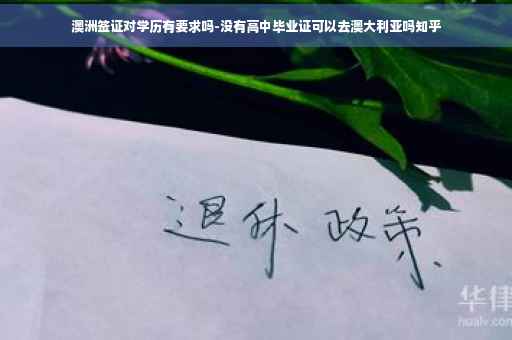 澳洲签证对学历有要求吗-没有高中毕业证可以去澳大利亚吗知乎
退休 政策
华律
hualv.com